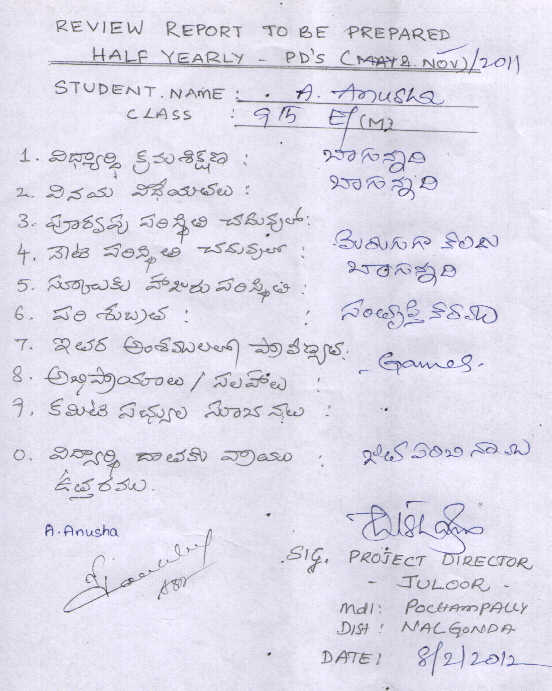 REVIEW REPORT TO BE PREPARED
HALF YEARLY - PD'S (MAY & NOV)/2011
STUDENT. NAME : A. Anusha
CLASS : 9th E/(M)
1. విద్యార్థి క్రమశిక్షణ : బాగున్నది
2. వినయ విధేయతలు : బాగున్నది
3. పూర్వపు పరిస్థితి చదువులో :
4. నేటి పరిస్థితి చదువులో : మెరుగుగా కలదు
5. స్కూలుకు హాజరు పరిస్థితి : బాగున్నది
6. పరి శుభ్రత : : సంతృప్తి కరము
7. ఇతర అంశములలో ప్రావీణ్యత :
8. అభిప్రాయాలు / సలహాలు : - Games -
9. కమిటి సభ్యుల సూచనలు :
0. విద్యార్థి దాతకు వ్రాయు :
ఉత్తరములు.
A. Anusha
SIG. PROJECT DIRECTOR
- JULOOR -
mdl: POCHAMPALLY
Dist : NALGONDA
DATE: 8/2/2012